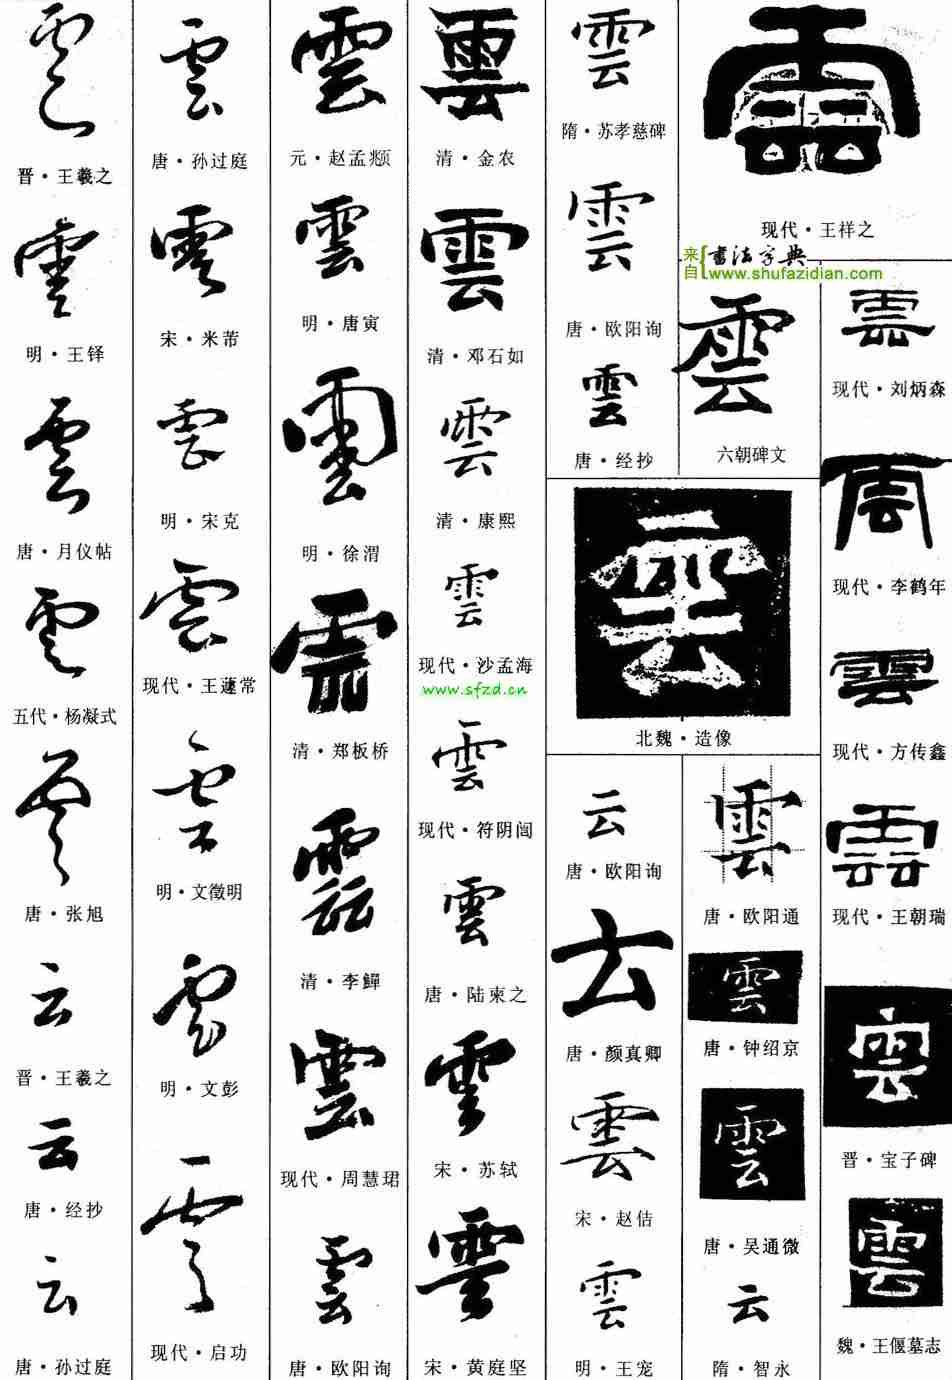 雲
晋·王羲之
雲
明·王铎
雲
唐·月仪帖
雲
五代·杨凝式
雲
唐·张旭
云
晋·王羲之
云
唐·经抄
云
唐·孙过庭
雲
唐·孙过庭
雲
宋·米芾
雲
明·宋克
雲
现代·王蘧常
雲
明·文徵明
雲
明·文彭
雲
现代·启功
雲
元·赵孟頫
雲
明·唐寅
雲
明·徐渭
雲
清·郑板桥
雲
清·李鱓
雲
现代·周慧珺
雲
唐·欧阳询
雲
清·金农
雲
清·邓石如
雲
清·康熙
雲
现代·沙孟海
www.sfzd.cn
雲
现代·符阴闿
雲
唐·陆柬之
雲
宋·苏轼
雲
宋·黄庭坚
雲
隋·苏孝慈碑
雲
唐·欧阳询
雲
唐·经抄
雲
现代·王祥之
来自{書法字典
www.shufazidian.com
雲
六朝碑文
雲
现代·刘炳森
雲
现代·李鹤年
雲
现代·方传鑫
雲
现代·王朝瑞
雲
晋·宝子碑
雲
魏·王偃墓志
雲
北魏·造像
云
唐·欧阳询
云
唐·颜真卿
雲
宋·赵佶
雲
明·王宠
雲
唐·欧阳通
雲
唐·钟绍京
雲
唐·吴通微
云
隋·智永